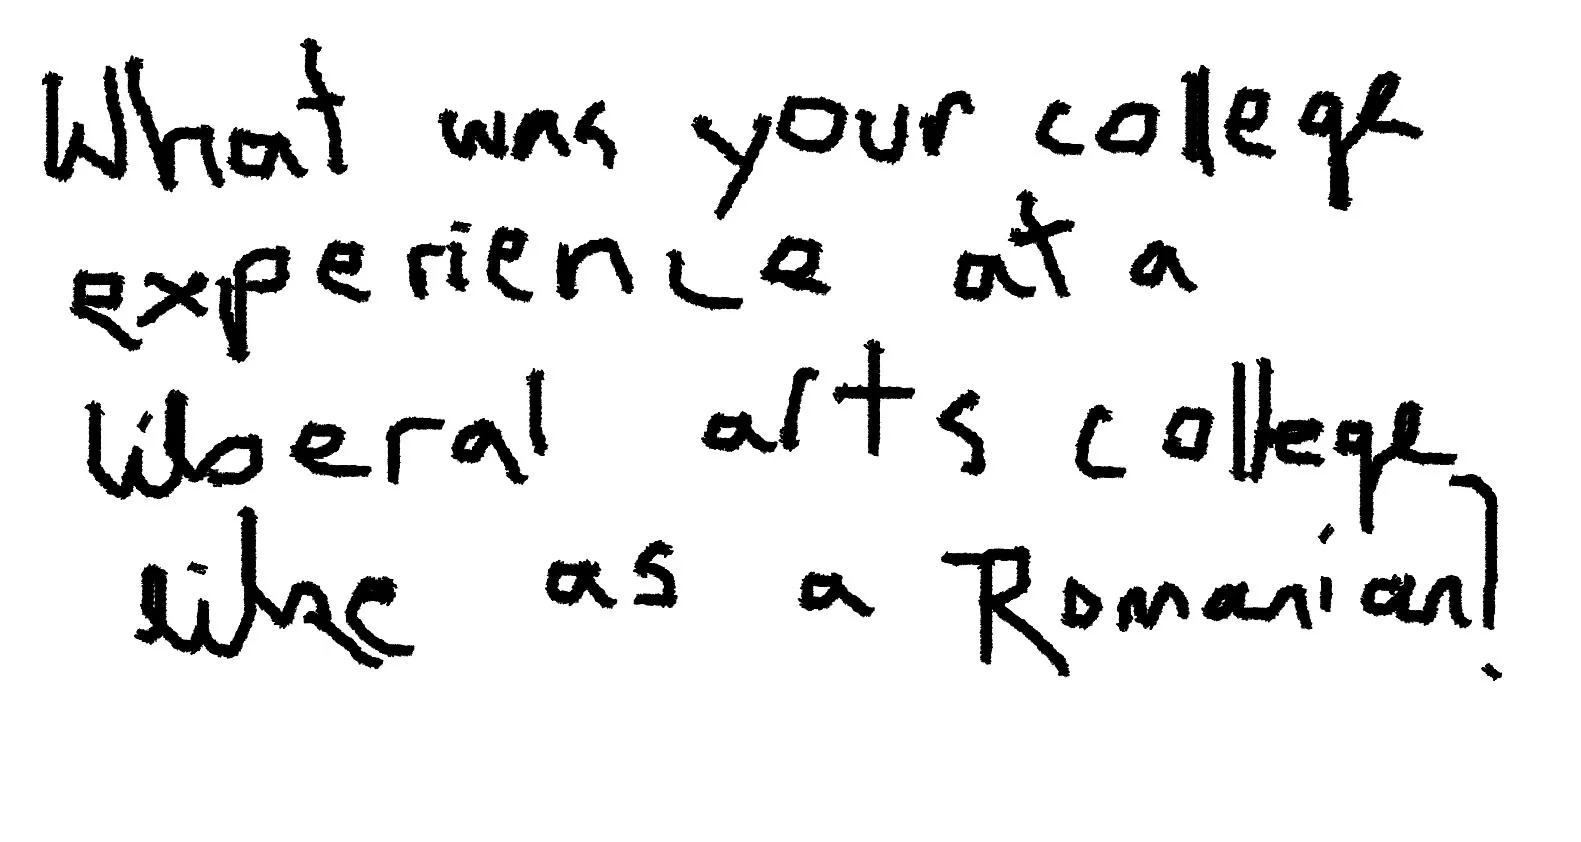 What was your college
experience at a
liberal arts college
like as a Romanian?